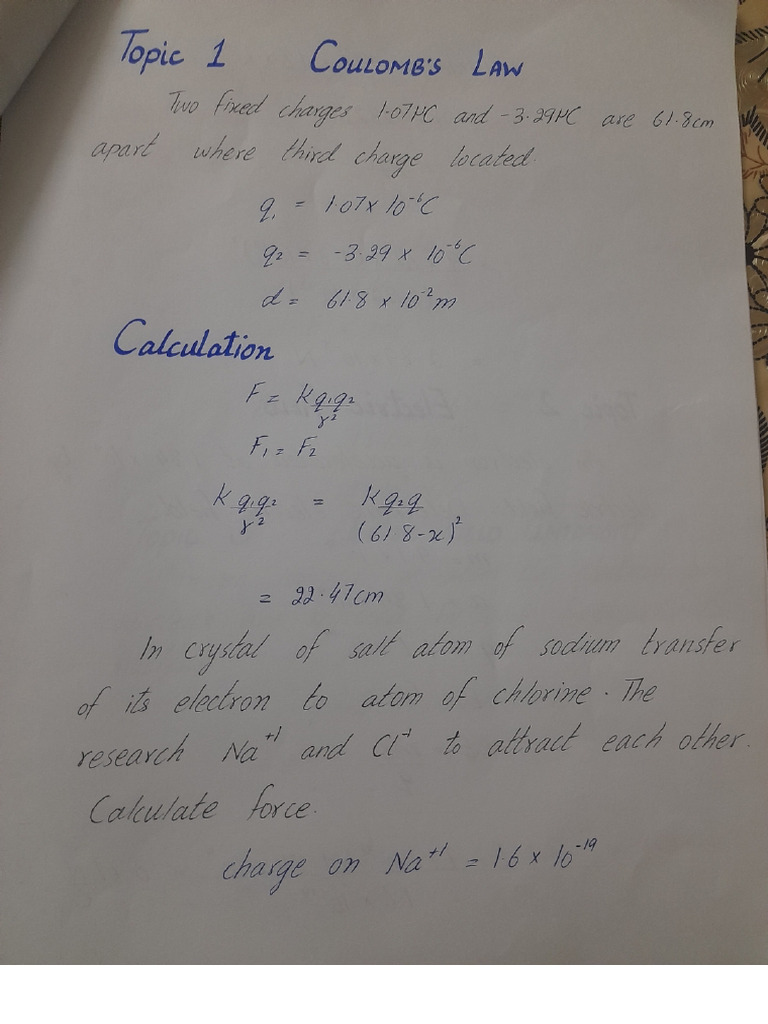 Topic 1 COULOMB'S LAW
Two fixed charges 1.07μC and -3.29μC are 61.8cm
apart where third charge located.
q₁ = 1.07 x 10⁻⁶C
q₂ = -3.29 x 10⁻⁶C
d = 61.8 x 10⁻²m
Calculation
F = Kq₁q₂/r²
F₁ = F₂
Kq₁q₂/r² = Kq₂q/(61.8-x)²
= 22.47cm
In crystal of salt atom of sodium transfer
of its electron to atom of chlorine. The
research Na⁺¹ and Cl⁻¹ to attract each other.
Calculate force.
charge on Na⁺¹ = 1.6 x 10⁻¹⁹